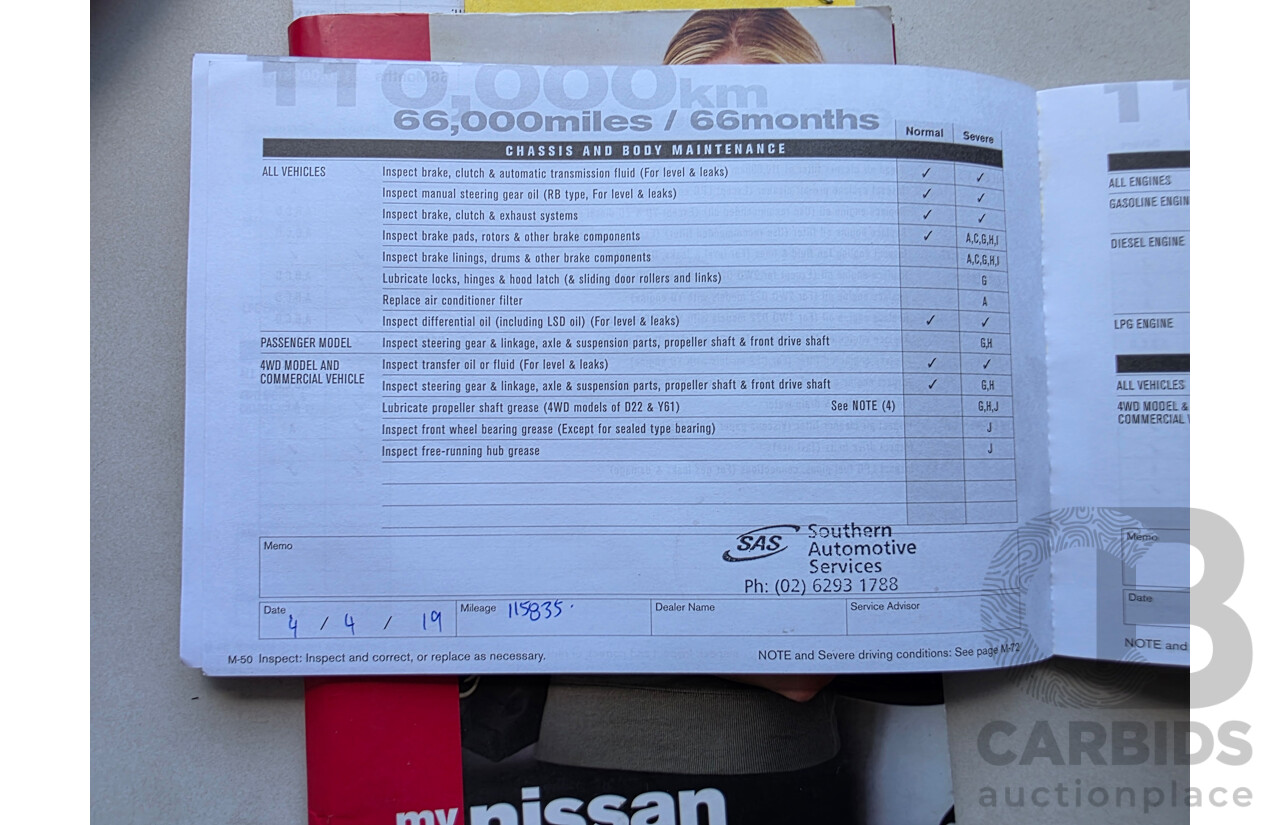 110,000km
66,000miles / 66months
Normal Severe
CHASSIS AND BODY MAINTENANCE
ALL VEHICLES Inspect brake, clutch & automatic transmission fluid (For level & leaks) ✓ ✓
Inspect manual steering gear oil (RB type, For level & leaks) ✓ ✓
Inspect brake, clutch & exhaust systems ✓ ✓
Inspect brake pads, rotors & other brake components ✓ A,C,G,H,I
Inspect brake linings, drums & other brake components A,C,G,H,I
Lubricate locks, hinges & hood latch (& sliding door rollers and links) G
Replace air conditioner filter A
Inspect differential oil (including LSD oil) (For level & leaks) ✓ ✓
PASSENGER MODEL Inspect steering gear & linkage, axle & suspension parts, propeller shaft & front drive shaft G,H
4WD MODEL AND COMMERCIAL VEHICLE Inspect transfer oil or fluid (For level & leaks) ✓ ✓
Inspect steering gear & linkage, axle & suspension parts, propeller shaft & front drive shaft ✓ G,H
Lubricate propeller shaft grease (4WD models of D22 & Y61) See NOTE (4) G,H,J
Inspect front wheel bearing grease (Except for sealed type bearing) J
Inspect free-running hub grease J
Memo
SAS Southern
Automotive
Services
Ph: (02) 6293 1788
Date 4 / 4 / 19 Mileage 115835 Dealer Name Service Advisor
M-50 Inspect: Inspect and correct, or replace as necessary. NOTE and Severe driving conditions: See page M-72
11
ALL ENGINES
GASOLINE ENGIN
DIESEL ENGINE
LPG ENGINE
ALL VEHICLES
4WD MODEL &
COMMERCIAL
Memo
Date
NOTE and
my nissan
CB
CARBIDS
auctionplace